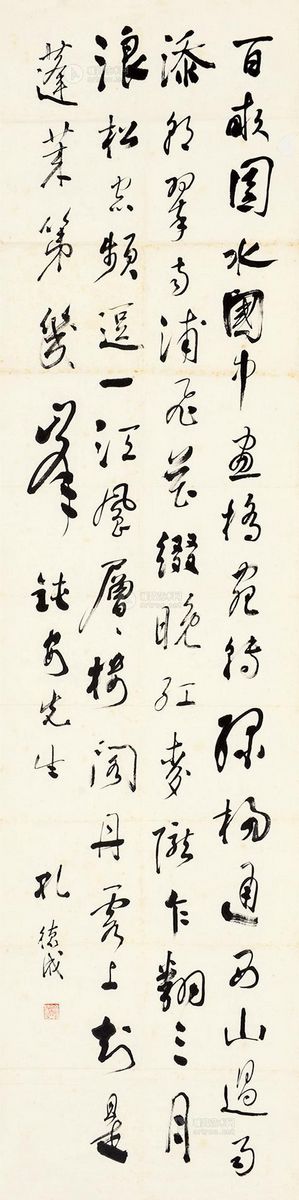 百頃園水國中畫橋宛轉綠楊通西山過雨
添朝翠南浦飛花綴晚紅麥隴乍翻三月
浪松窗頻逗一江風層々樓閣丹霞上知是
蓬萊第幾峯 鈍安先生 孔德成